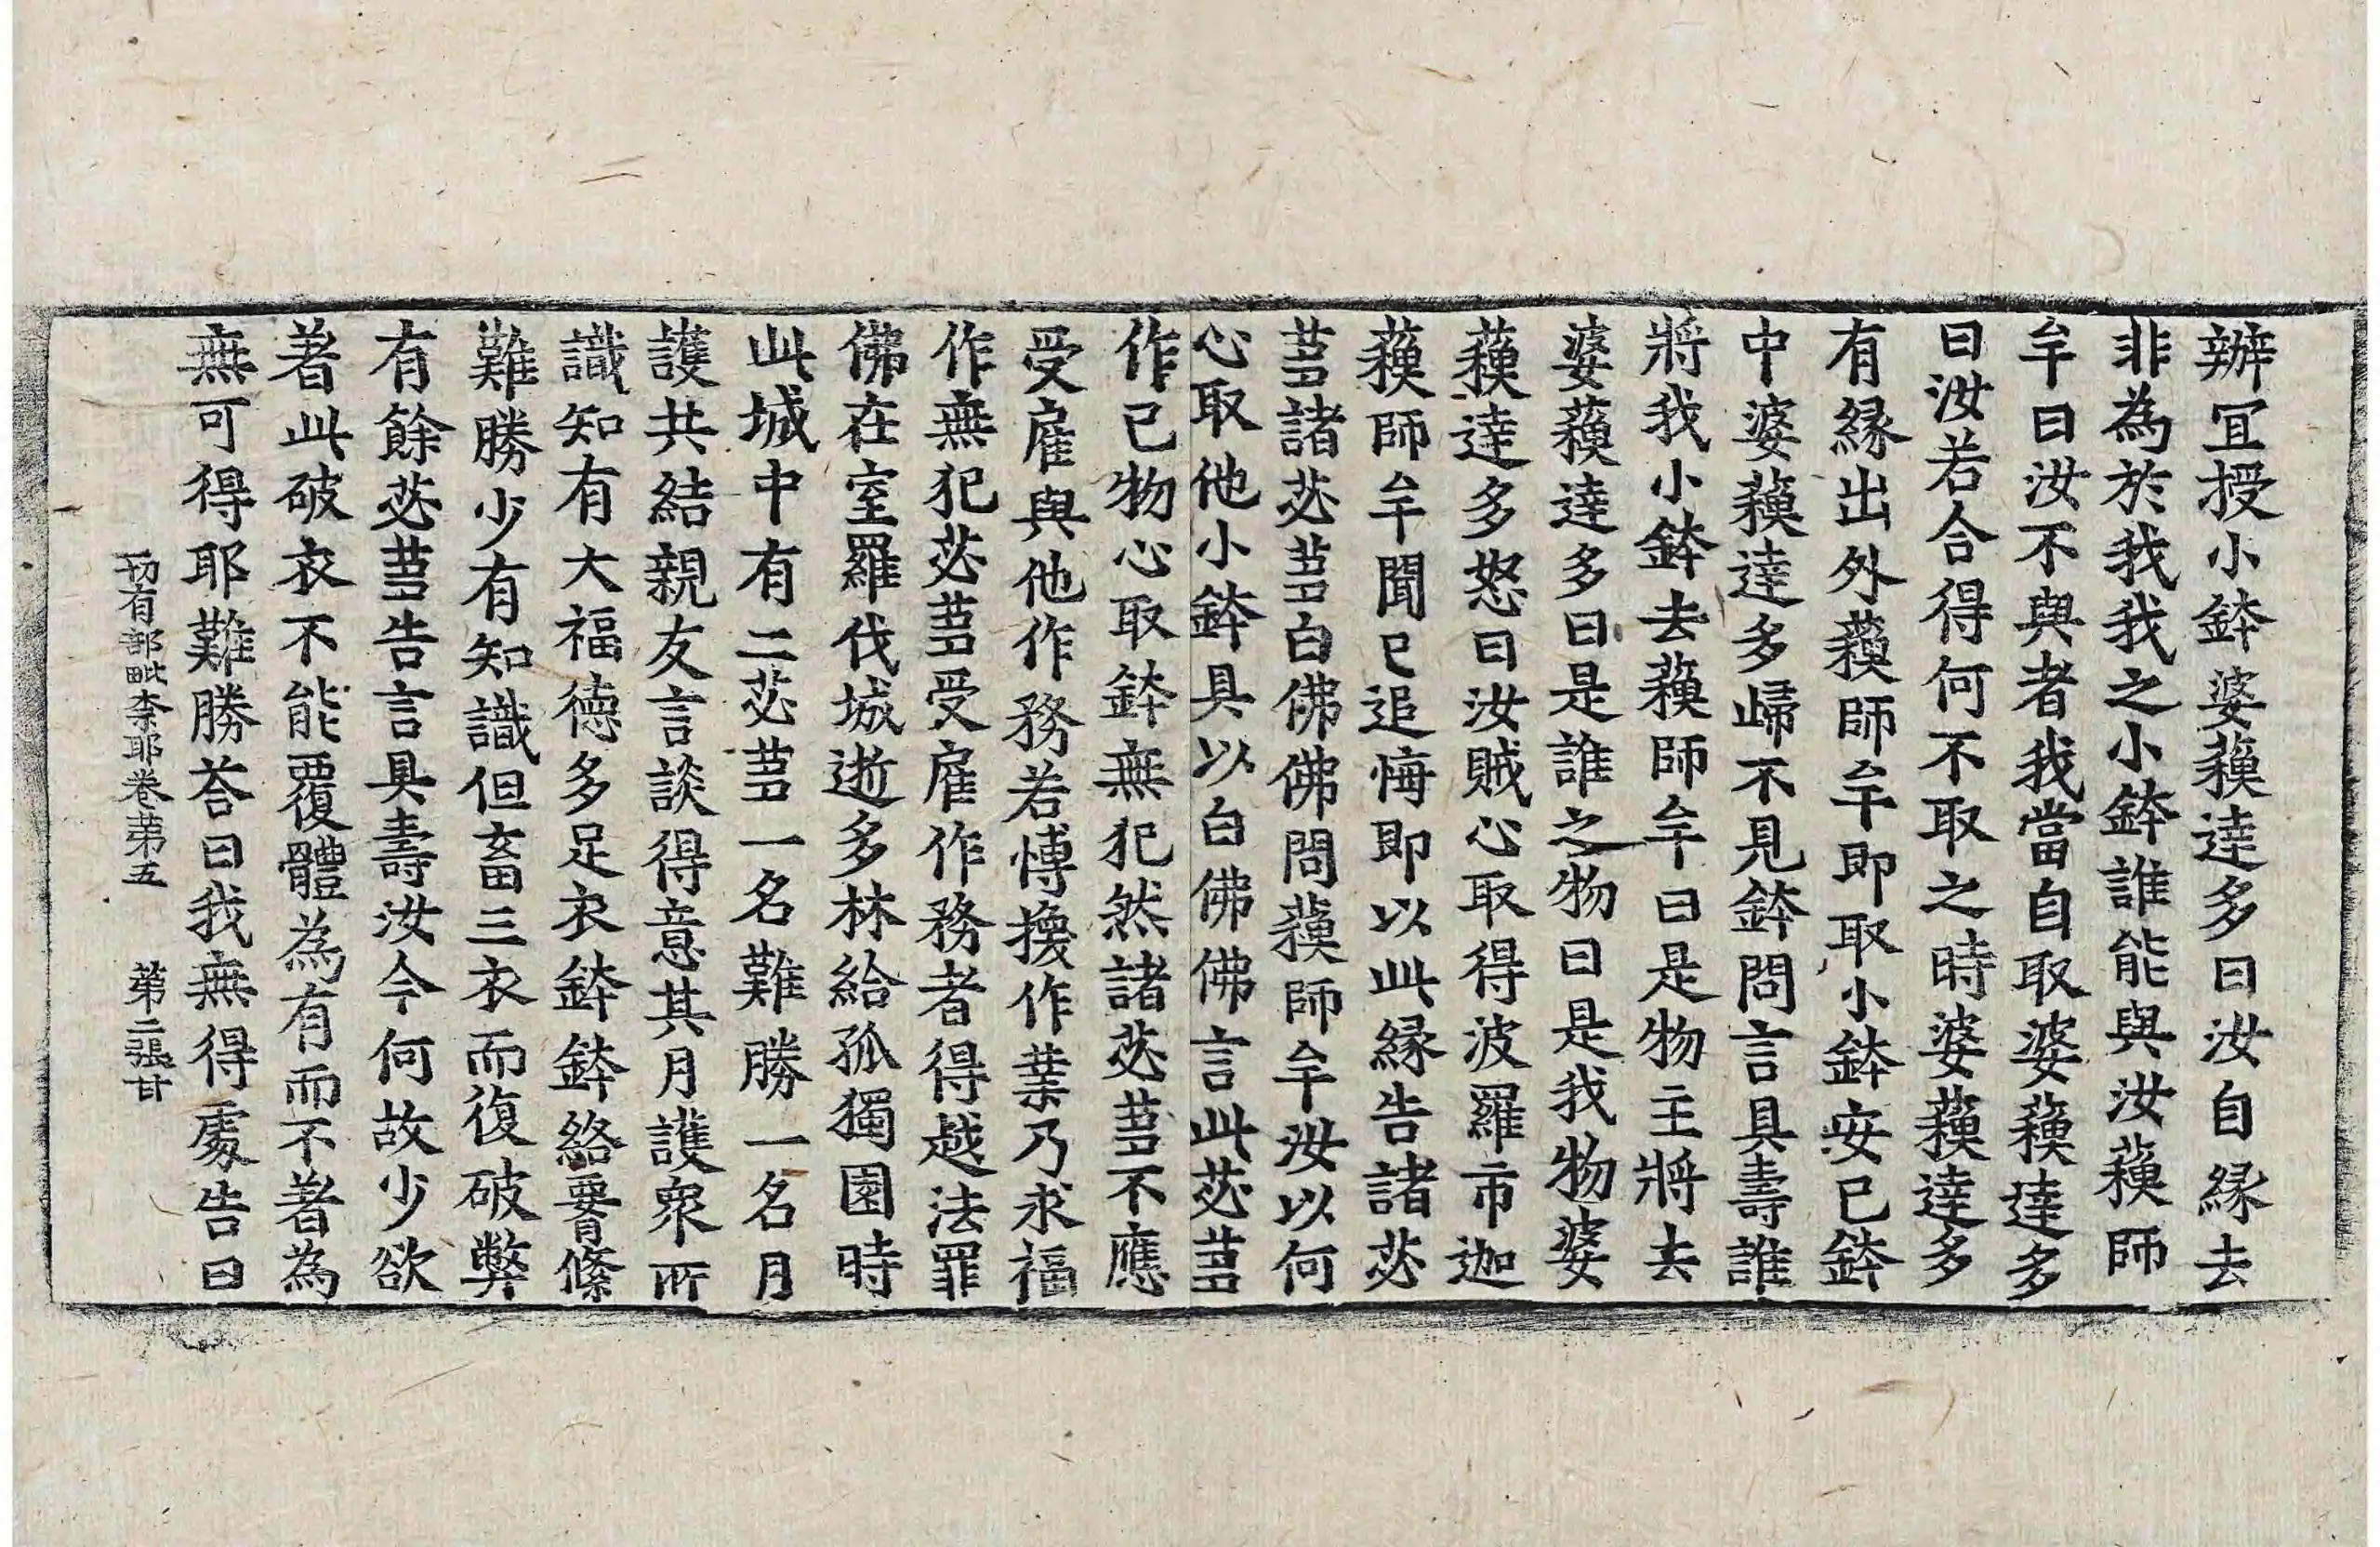 辦冝授小鉢婆蘓達多曰汝自縁去
非為於我我之小鉢誰能與汝蘓師
牟曰汝不與者我當自取婆蘓達多
曰汝若合得何不取之時婆蘓達多
有縁出外蘓師牟即取小鉢安已鉢
中婆蘓達多歸不見鉢問言具壽誰
將我小鉢去蘓師牟曰是物主將去
婆蘓達多曰是誰之物曰是我物婆
蘓達多怒曰汝賊心取得波羅市迦
蘓師牟聞已追悔即以此縁告諸苾
蒭諸苾蒭白佛佛問蘓師牟汝以何
心取他小鉢具以白佛佛言此苾蒭
作已物心取鉢無犯然諸苾蒭不應
受雇與他作務若慱換作業乃求福
作無犯苾蒭受雇作務者得越法罪
佛在室羅伐城逝多林給孤獨園時
此城中有二苾蒭一名難勝一名月
護共結親友言談得意其月護衆所
識知有大福德多足衣鉢鉢絡要絛
難勝少有知識但畜三衣而復破弊
有餘苾蒭告言具壽汝今何故少欲
著此破衣不能覆體為有而不著為
無可得耶難勝荅曰我無得處告曰
一切有部毗奈耶卷苐五 苐二張 甘